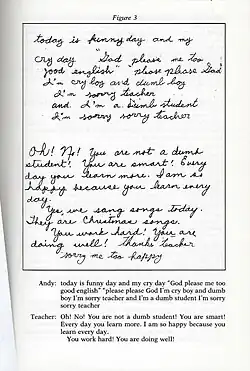 Figure 3
today is funny day and my
cry day "God please me too
good english" please please God"
I'm cry boy and dumb boy
I'm sorry teacher
and I'm a dumb student
I'm sorry sorry teacher
Oh! No! You are not a dumb
student! You are smart! Every
day you learn more. I am so
happy because you learn every
day.
Yes, we sang songs today.
They are Christmas songs.
You work hard! You are
doing well! thanks teacher
sorry me too happy
Andy: today is funny day and my cry day "God please me too
good english" "please please God I'm cry boy and dumb
boy I'm sorry teacher and I'm a dumb student I'm sorry
sorry teacher
Teacher: Oh! No! You are not a dumb student! You are smart!
Every day you learn more. I am so happy because you
learn every day.
You work hard! You are doing well!